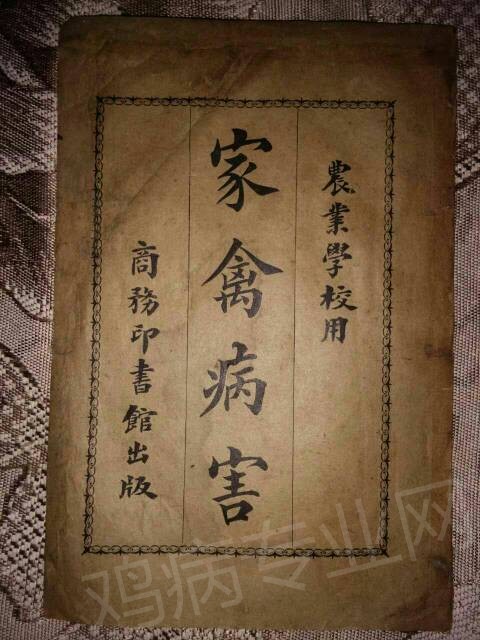 農業學校用
家禽病害
商務印書館出版
鸡病专业网